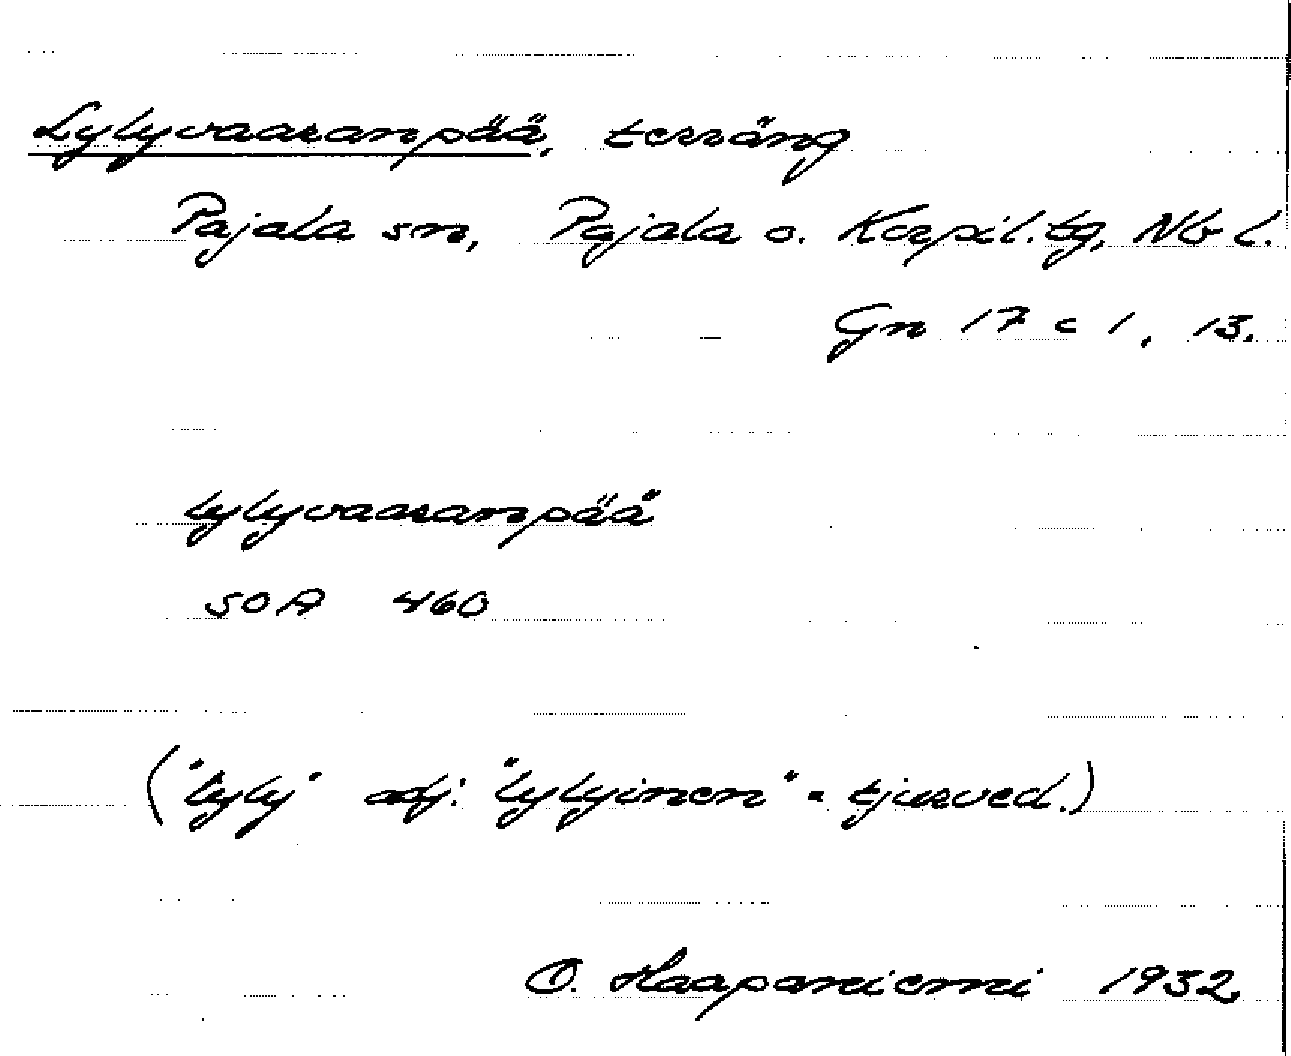 Lylyvaaranpää, terräng
Pajala sn, Pajala o. Korpil. tg, Nb l.
Gn 17 c 1, 13.
lylyvaaranpää
SOA 460
("lyly" adj. "lylyinen" = tjurved.)
O. Haapaniemi 1932